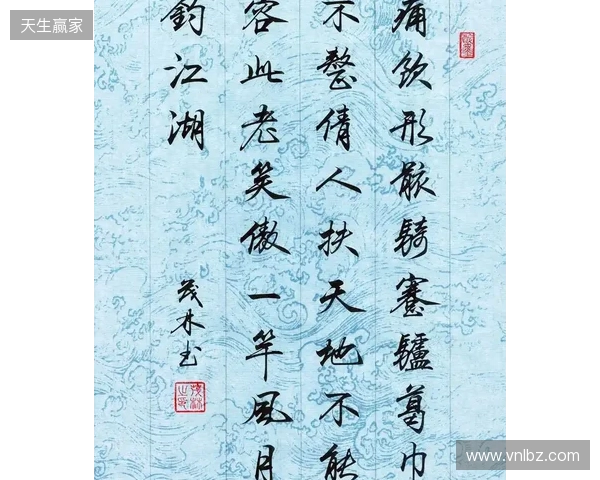 天生赢家
痛飲形骸騎蹇驢葛巾
不整倩人扶天地不能
容此老笑傲一竿風月
釣江湖
茂林书
www.vnlbz.com